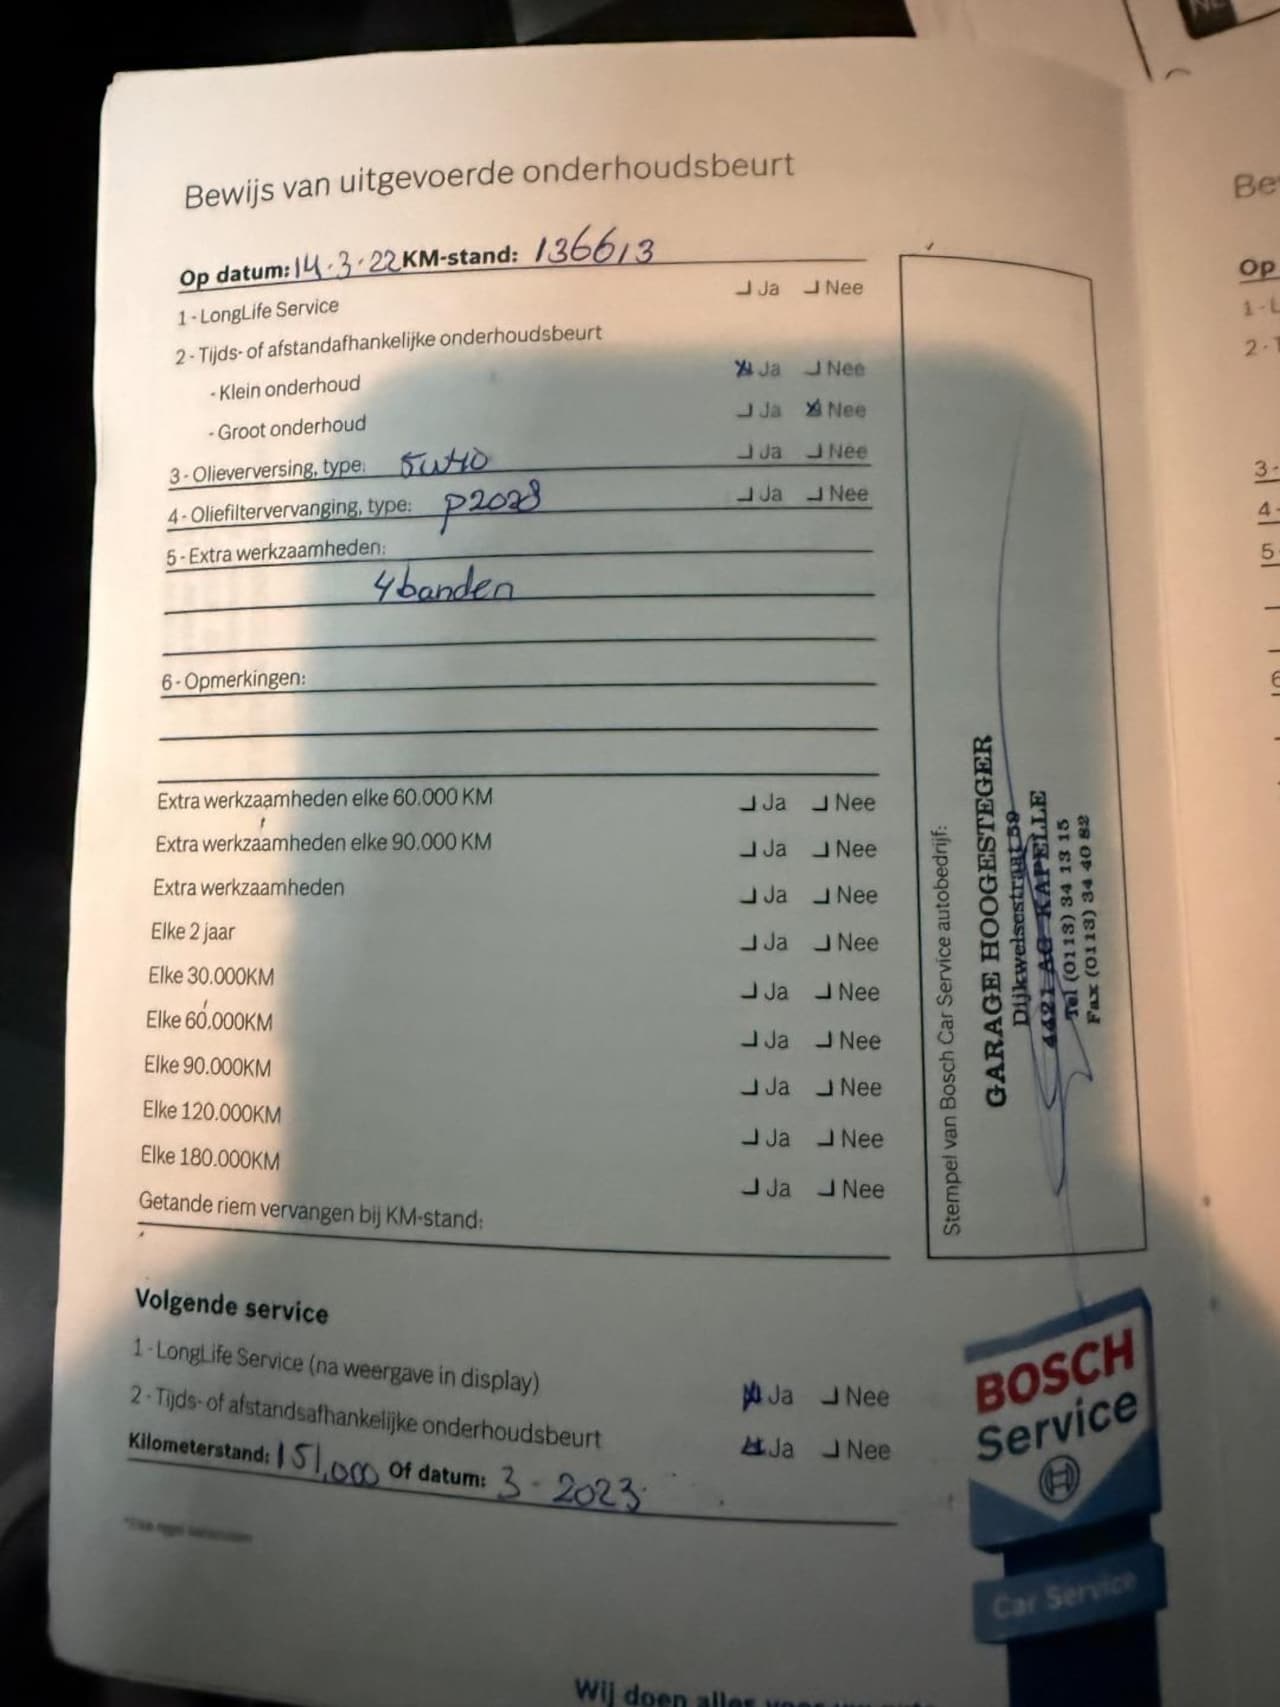 Bewijs van uitgevoerde onderhoudsbeurt
Op datum: 14.3.22 KM-stand: 136613
1 - LongLife Service Ja Nee
2 - Tijds- of afstandafhankelijke onderhoudsbeurt
- Klein onderhoud Ja Nee
- Groot onderhoud Ja Nee
3 - Olieverversing, type: 5W40 Ja Nee
4 - Oliefiltervervanging, type: P2028 Ja Nee
5 - Extra werkzaamheden:
4 banden
6 - Opmerkingen:
Extra werkzaamheden elke 60.000 KM Ja Nee
Extra werkzaamheden elke 90.000 KM Ja Nee
Extra werkzaamheden Ja Nee
Elke 2 jaar Ja Nee
Elke 30.000KM Ja Nee
Elke 60.000KM Ja Nee
Elke 90.000KM Ja Nee
Elke 120.000KM Ja Nee
Elke 180.000KM Ja Nee
Getande riem vervangen bij KM-stand:
Volgende service
1 - LongLife Service (na weergave in display) Ja Nee
2 - Tijds- of afstandsafhankelijke onderhoudsbeurt Ja Nee
Kilometerstand: 151,000 Of datum: 3 - 2023
Stempel van Bosch Car Service autobedrijf:
GARAGE HOOGESTEGER
Dijkwelsestraat 59
4421 AG KAPELLE
Tel (0113) 34 13 15
Fax (0113) 34 40 82
BOSCH
Service
Car Service
Wij doen alles
Op
1 - L
2 - T
3 -
4 -
5
6